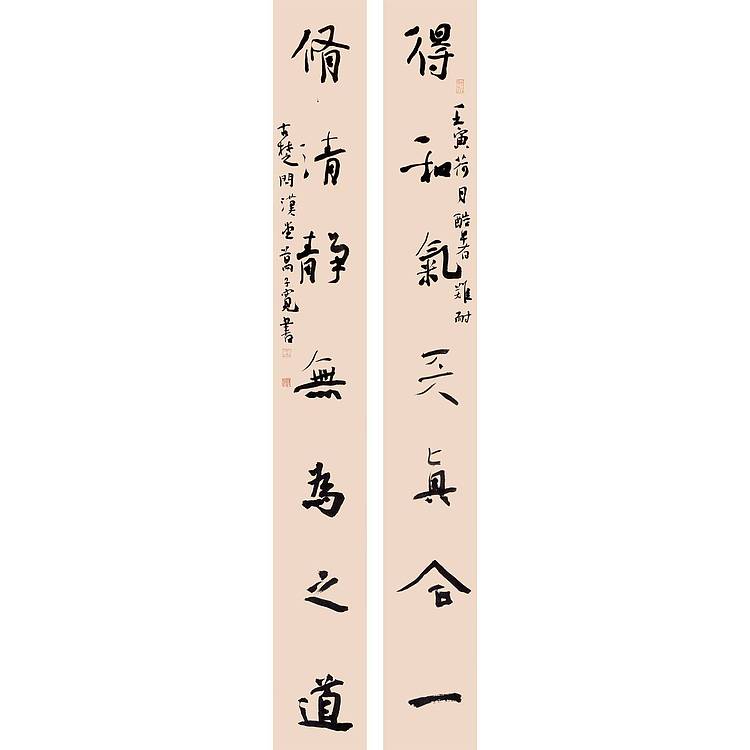 得和氣天真合一
壬寅荷月酷暑難耐
脩清靜無為之道
古楚問漢堂萬子寬書